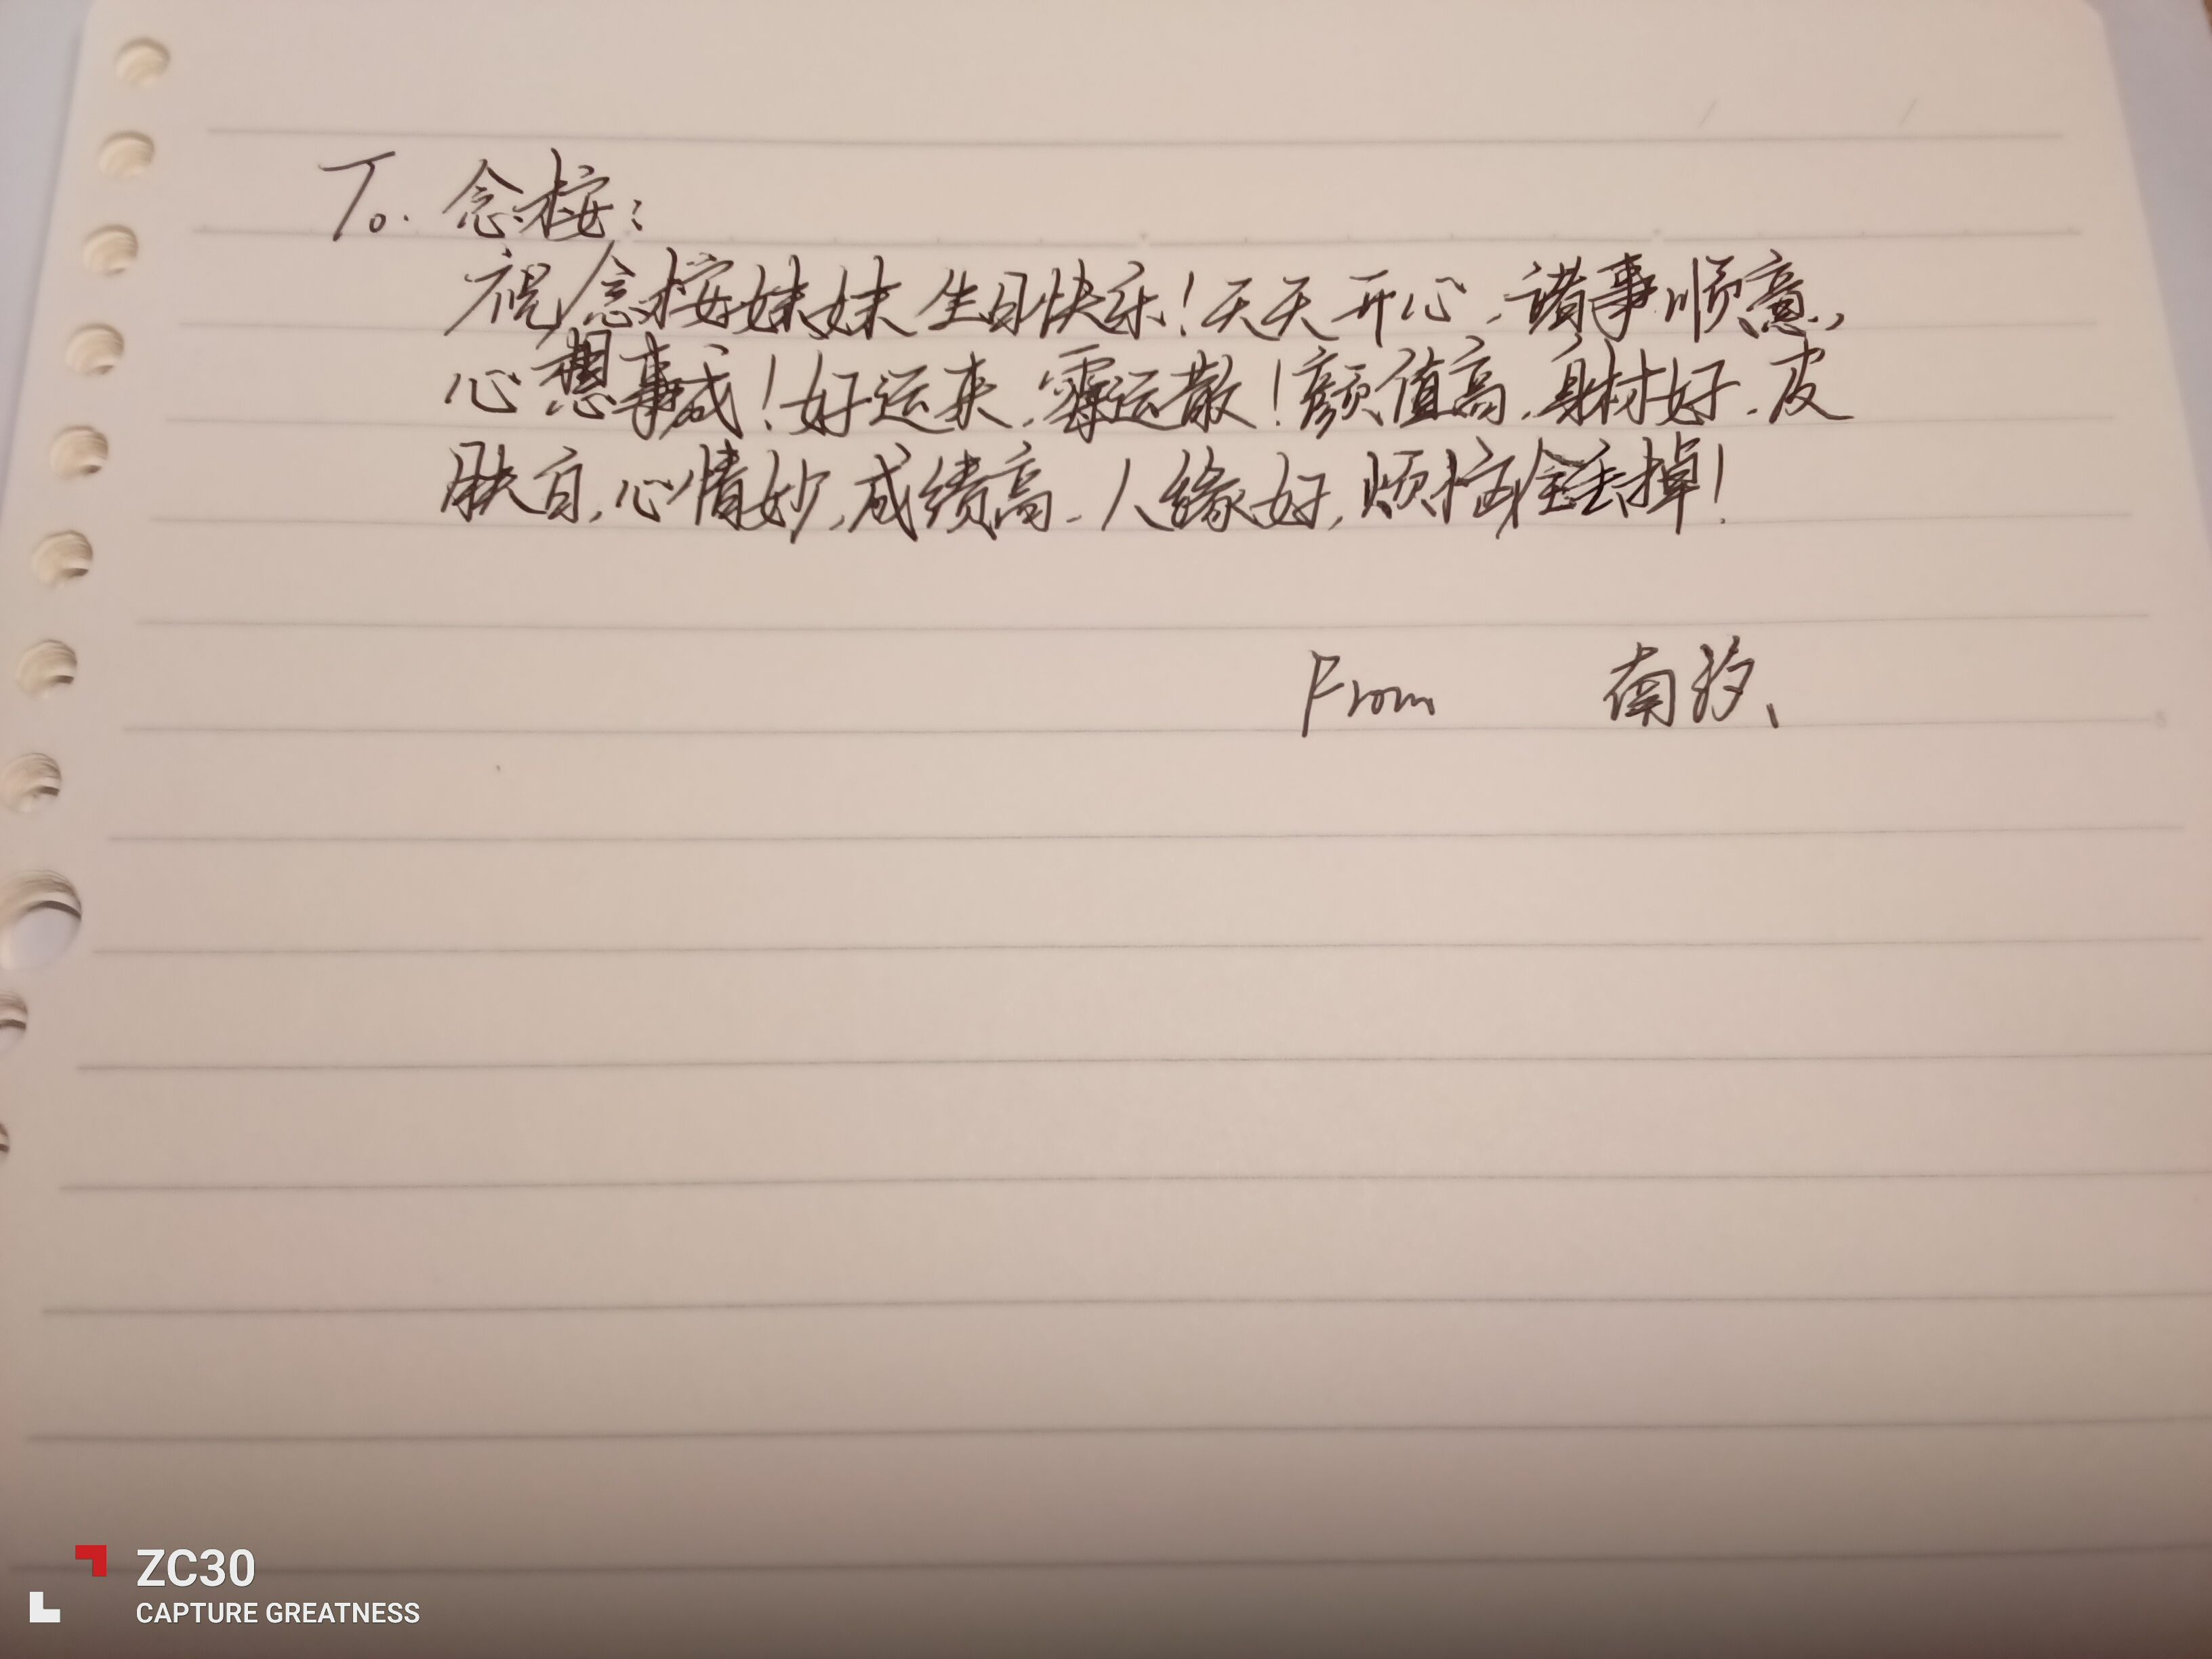 To. 念桉：
祝念桉妹妹生日快乐！天天开心，诸事顺意，
心想事成！好运来，霉运散！颜值高，身材好，皮
肤白，心情妙，成绩高，人缘好，烦恼全丢掉！
From 南汐、
ZC30
CAPTURE GREATNESS